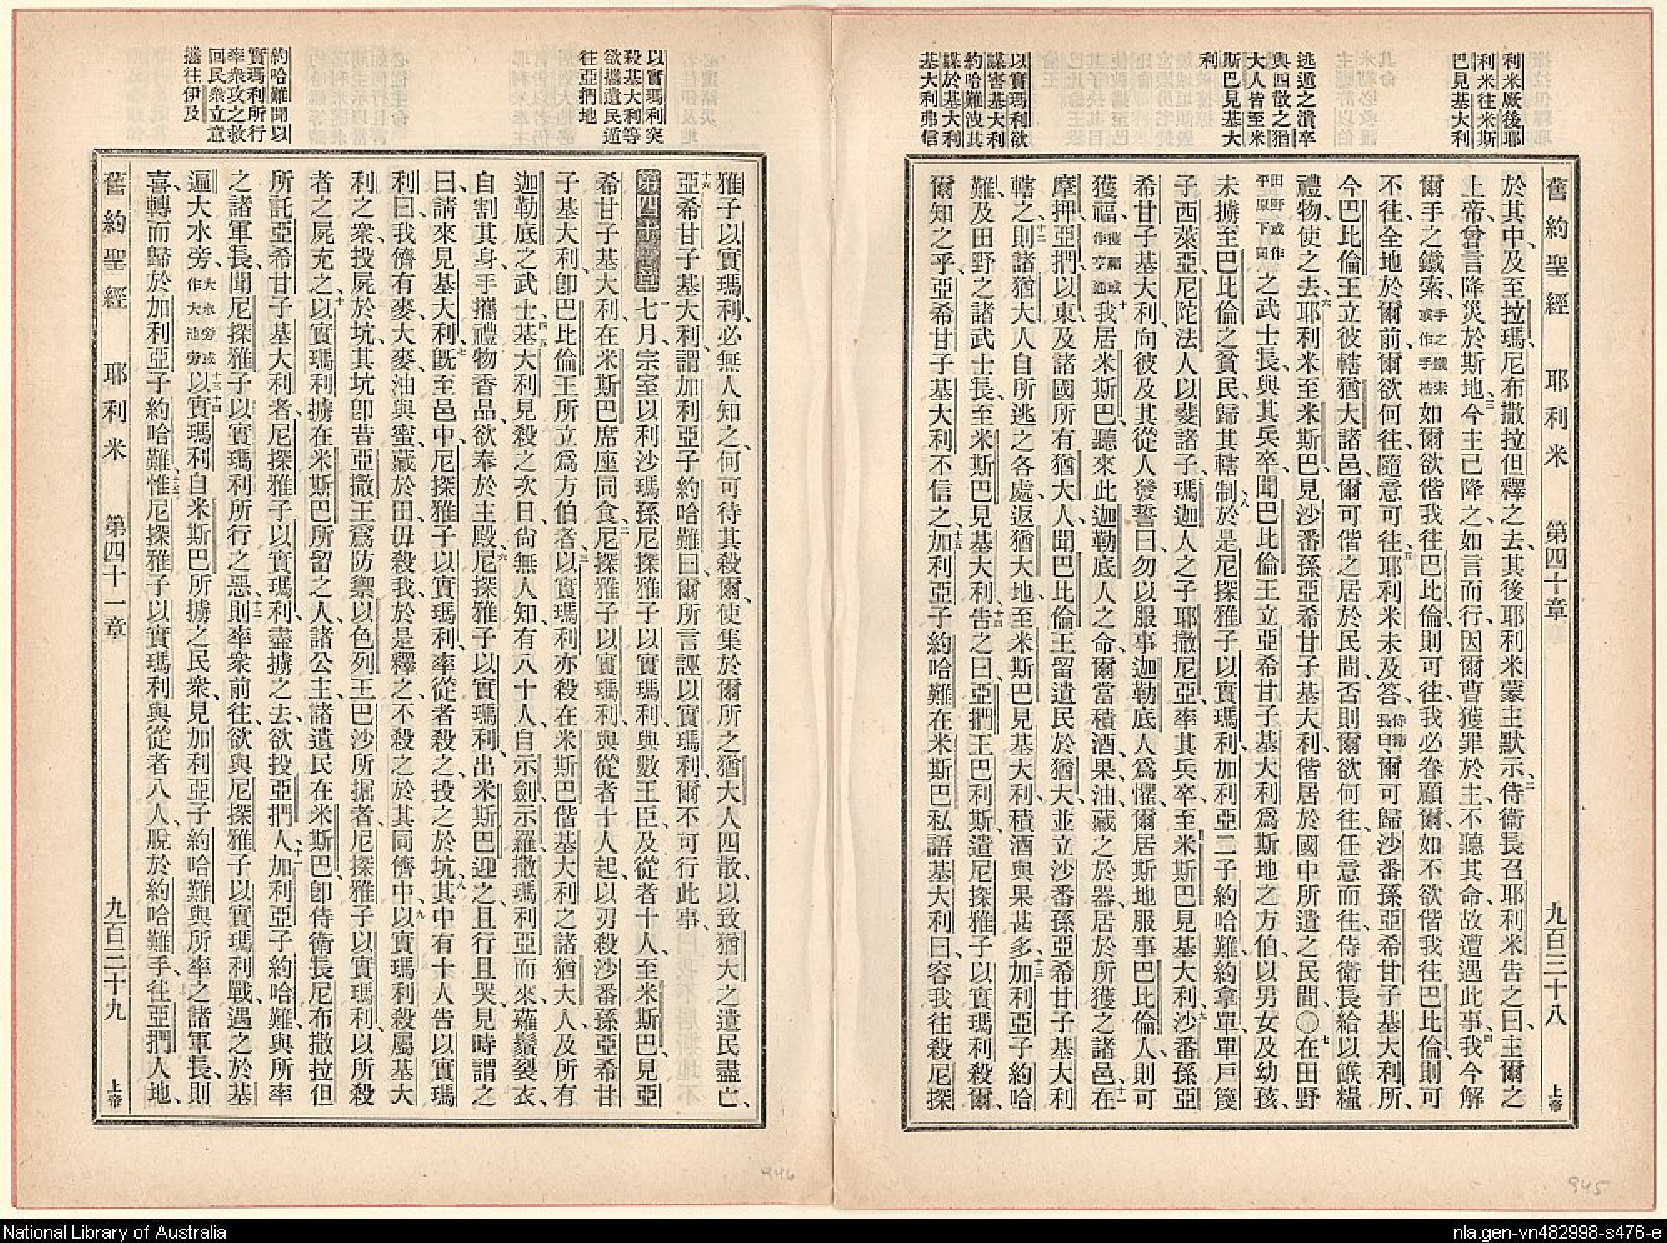 利米厥後耶
利米往米斯
巴見基大利
逃遁之潰卒
與四散之猶
大人皆至米
斯巴見基大
利
以實瑪利欲
謀害基大利
約哈難洩其
謀於基大利
基大利弗信
舊約聖經 耶利米 第四十章 九百三十八 上帝
於其中、及至拉瑪、尼布撒拉但釋之去、其後耶利米蒙主默示、二侍衛長召耶利米告之曰、主爾之
上帝曾言降災於斯地、三今主已降之、如言而行、因爾曹獲罪於主、不聽其命、故遭遇此事、四我今解
爾手之鐵索、手之鐵索或作手梏如爾欲偕我往巴比倫則可往、我必眷顧爾、如不欲偕我往巴比倫、則可
不往、全地於爾前、爾欲何往、隨意可往、五耶利米未及答、侍衛長曰爾可歸沙番孫亞希甘子基大利所、
今巴比倫王立彼轄猶大諸邑、爾可偕之居於民間、否則爾欲何往、任意而往、侍衛長給以餱糧
禮物、使之去、六耶利米至米斯巴、見沙番孫亞希甘子基大利、偕居於國中所遺之民間、〇七在田野
田野或作平原下同之武士長、與其兵卒、聞巴比倫王立亞希甘子基大利為斯地之方伯、以男女及幼孩、
未擄至巴比倫之貧民、歸其轄制、八於是尼探雅子以實瑪利、加利亞二子約哈難、約拿單、單戶篾
子西萊亞、尼陀法人以斐諸子、瑪迦人之子耶撒尼亞、率其兵卒、至米斯巴見基大利、九沙番孫亞
希甘子基大利、向彼及其從人發誓曰、勿以服事迦勒底人為懼、爾居斯地、服事巴比倫人、則可
獲福、十我居米斯巴、聽來此迦勒底人之命、爾當積酒、果、油、藏之於器、居於所獲之諸邑、十一在
摩押、亞捫、以東、及諸國所有猶大人、聞巴比倫王留遺民於猶大、並立沙番孫亞希甘子基大利
轄之、十二則諸猶大人自所逃之各處、返猶大地、至米斯巴見基大利、積酒與果甚多、十三加利亞子約哈
難、及田野之諸武士長、至米斯巴見基大利、十四告之曰、亞捫王巴利斯遣尼探雅子以實瑪利殺爾、
爾知之乎、亞希甘子基大利不信之、十五加利亞子約哈難、在米斯巴私語基大利曰、容我往殺尼探
以實瑪利突
殺基大利等
欲擄遺民遁
往亞捫地
約哈難聞以
實瑪利所行
率衆攻之救
回民衆立意
擕往伊及
雅子以實瑪利、必無人知之、何可待其殺爾、使集於爾所之猶大人四散、以致猶大之遺民盡亡、
十六亞希甘子基大利、謂加利亞子約哈難曰、爾所言誣以實瑪利、爾不可行此事、
第四十一章 一七月、宗室以利沙瑪孫尼探雅子以實瑪利、與數王臣、及從者十人、至米斯巴、見亞
希甘子基大利、在米斯巴席座同食、二尼探雅子以實瑪利、與從者十人起、以刃殺沙番孫亞希甘
子基大利、卽巴比倫王所立為方伯者、三以實瑪利亦殺在米斯巴偕基大利之諸猶大人、及所有
迦勒底之武士、四五基大利見殺之次日、尙無人知、有八十人、自示劍、示羅、撒瑪利亞而來、薙鬚裂衣、
自割其身、手攜禮物香品、欲奉於主殿、六尼探雅子以實瑪利、出米斯巴迎之、且行且哭、見時謂之
曰、請來見基大利、七旣至邑中、尼探雅子以實瑪利、率從者殺之、投之於坑、八其中有十人告以實瑪
利曰、我儕有麥、大麥、油與蜜、藏於田、毋殺我、於是釋之、不殺之於其同儕中、九以實瑪利殺屬基大
利之衆、投屍於坑、其坑卽昔亞撒王為防禦以色列王巴沙所掘者、尼探雅子以實瑪利、以所殺
者之屍充之、十以實瑪利擄在米斯巴所留之人、諸公主、諸遺民在米斯巴、卽侍衛長尼布撒拉但
所託亞希甘子基大利者、尼探雅子以實瑪利、盡擄之去、欲投亞捫人、十一加利亞子約哈難、與所率
之諸軍長、聞尼探雅子以實瑪利所行之惡、十二則率衆前往、欲與尼探雅子以實瑪利戰、遇之於基
遍大水旁、大水旁或作大池旁十三十四以實瑪利自米斯巴所擄之民衆、見加利亞子約哈難與所率之諸軍長、則
喜、轉而歸於加利亞子約哈難、十五惟尼探雅子以實瑪利與從者八人、脫於約哈難手、往亞捫人地、
舊約聖經 耶利米 第四十一章 九百三十九 上帝
946
945
National Library of Australia
nla.gen-vn482998-s476-e